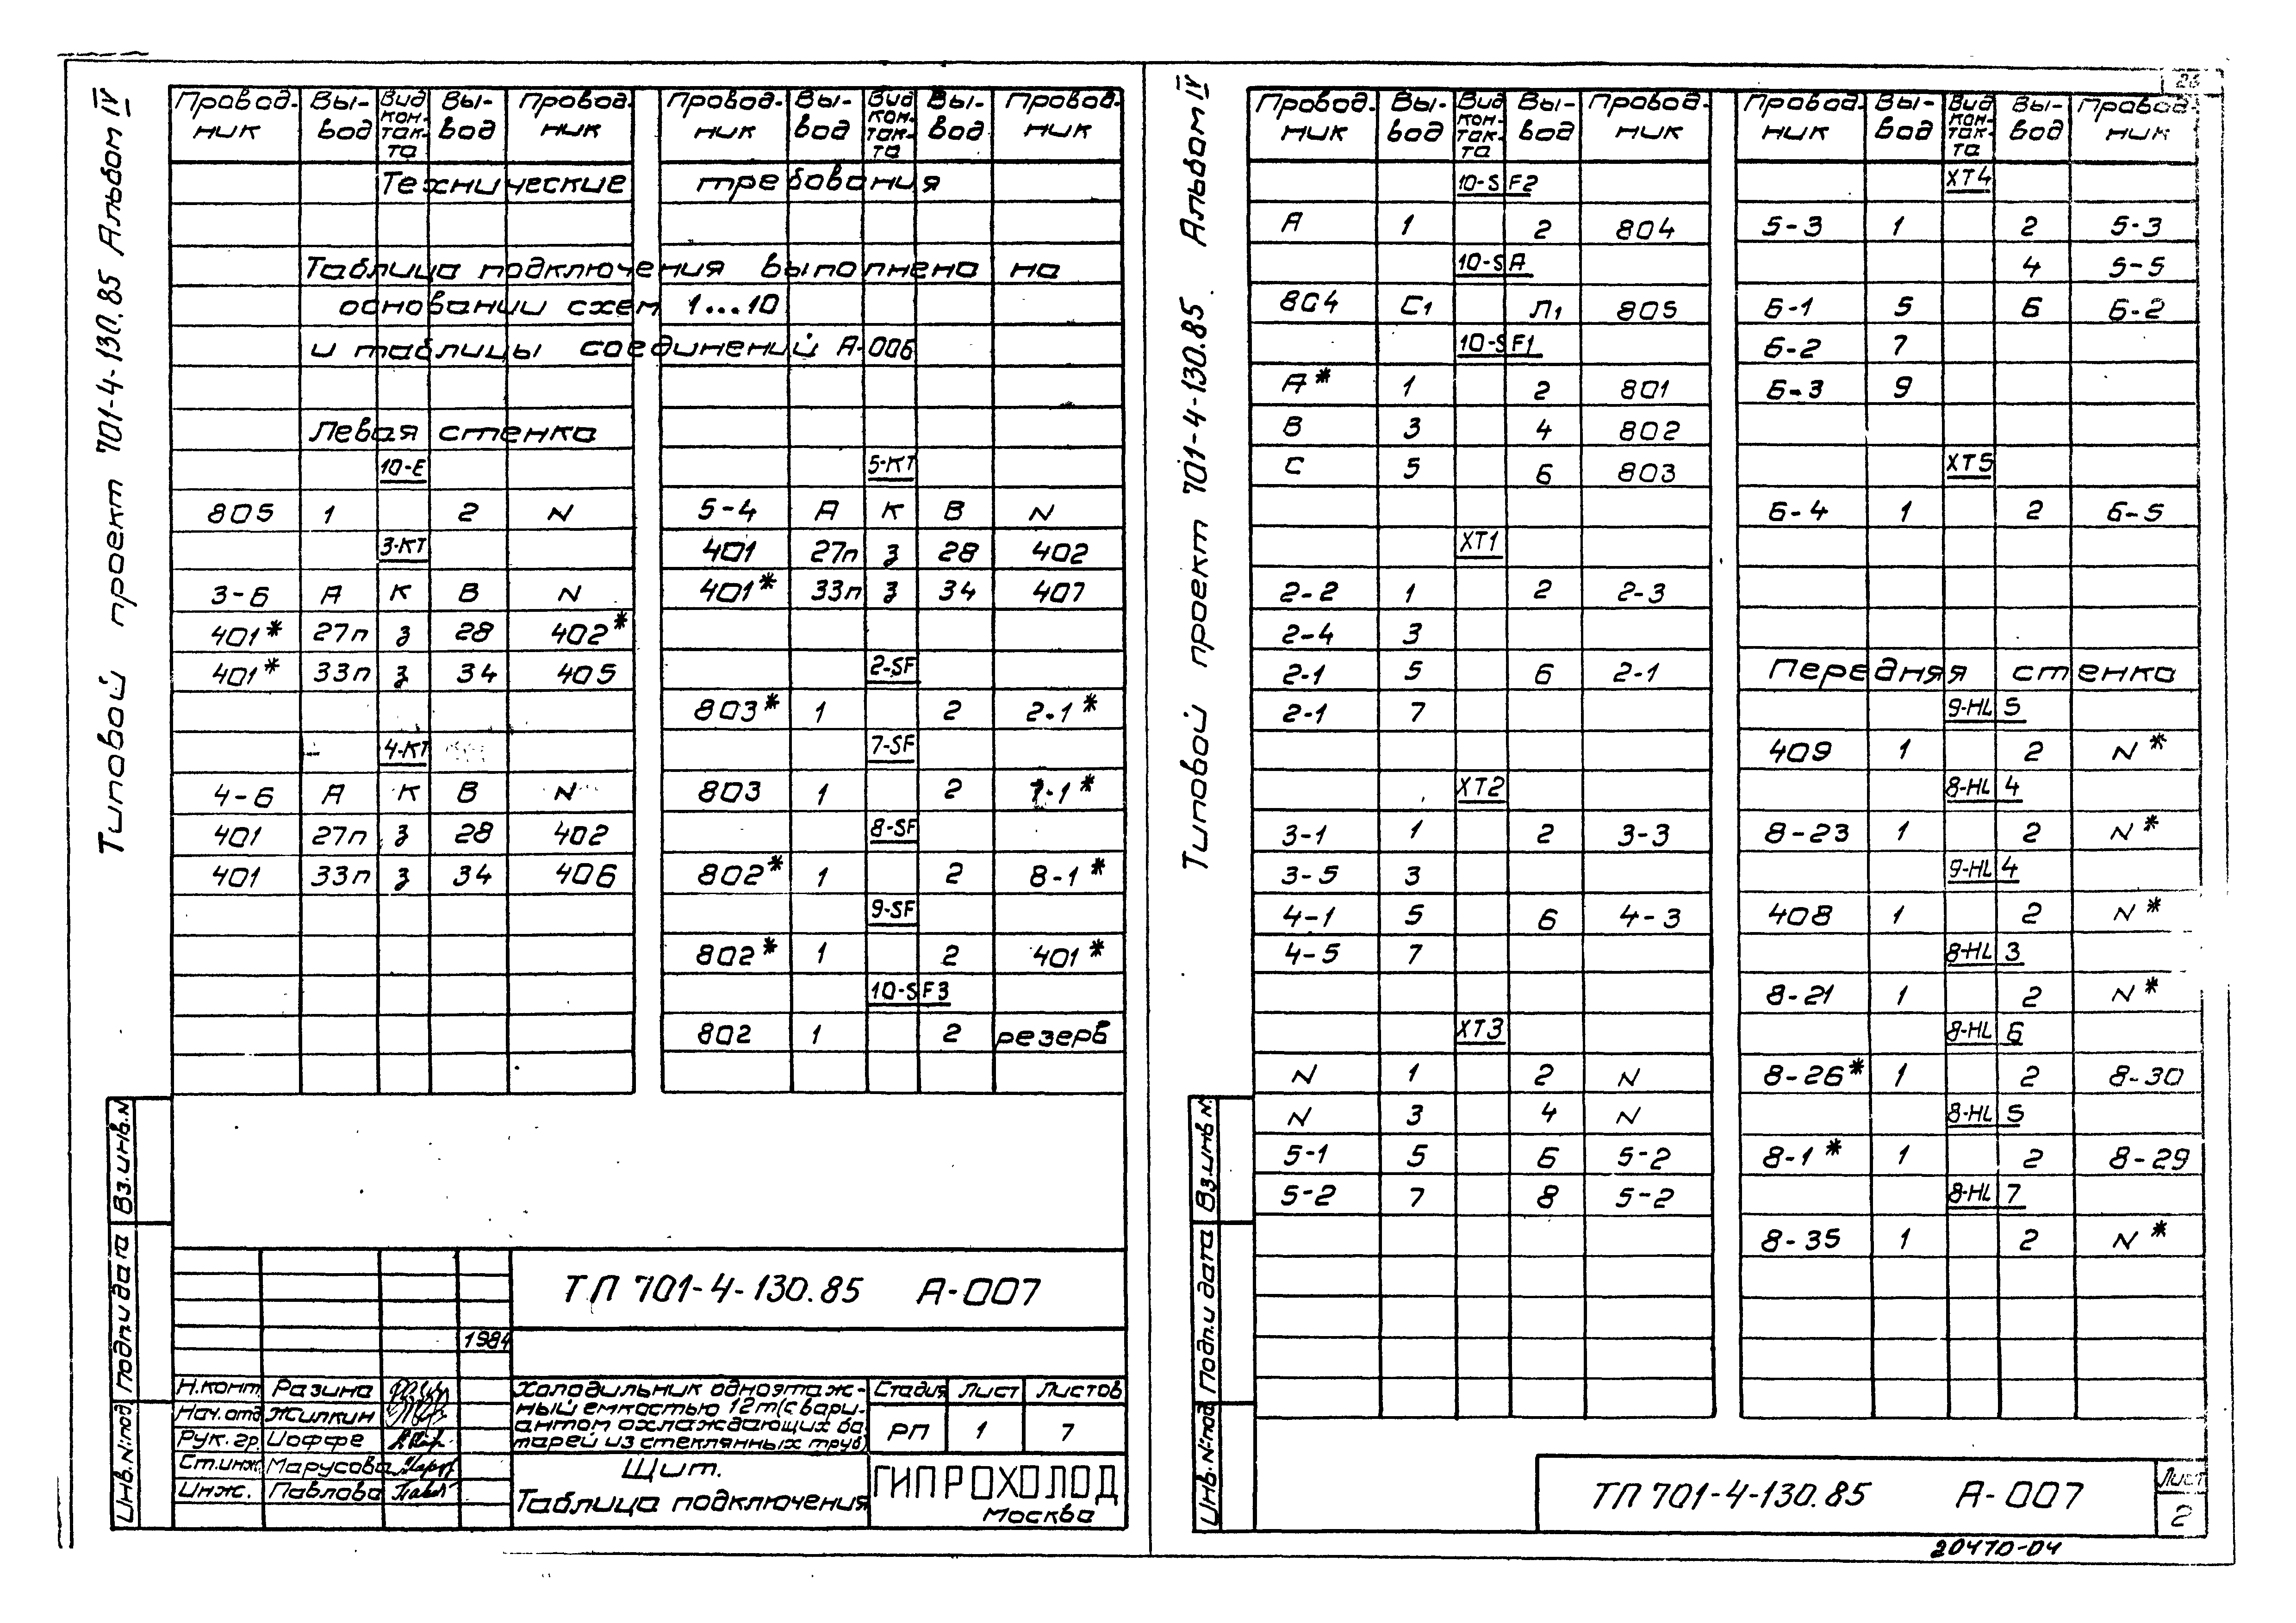 Типовой проект 701-4-130.85 Альбом IV
Провод-ник Вы-вод Вид кон-так-та Вы-вод Провод-ник
Технические требования
Таблица подключения выполнена на
основании схем 1...10
и таблицы соединений А-006
Левая стенка
10-Е
805 1 2 N
3-КТ
3-6 А К В N
401* 27п з 28 402*
401* 33п з 34 405
4-КТ
4-6 А К В N
401 27п з 28 402
401 33п з 34 406
Провод-ник Вы-вод Вид кон-так-та Вы-вод Провод-ник
5-КТ
5-4 А К В N
401 27п з 28 402
401* 33п з 34 407
2-SF
803* 1 2 2-1*
7-SF
803 1 2 7-1*
8-SF
802* 1 2 8-1*
9-SF
802* 1 2 401*
10-SF3
802 1 2 резерв
Вз.инв.N
Подп.и дата
Инв.N°под.
ТП 701-4-130.85 А-007
1984
Н.конт. Разина
Нач.отд Жилкин
Рук. гр. Иоффе
Ст.инж. Марусова
Инж. Павлова
Холодильник одноэтаж-
ный емкостью 12т(с вари-
антом охлаждающих ба-
тарей из стеклянных труб)
Стадия Лист Листов
РП 1 7
Щит.
Таблица подключения
ГИПРОХОЛОД
Москва
26
Типовой проект 701-4-130.85. Альбом IV
Провод-ник Вы-вод Вид кон-так-та Вы-вод Провод-ник
10-SF2
А 1 2 804
10-SA
804 С1 Л1 805
10-SF1
А* 1 2 801
В 3 4 802
С 5 6 803
ХТ1
2-2 1 2 2-3
2-4 3
2-1 5 6 2-1
2-1 7
ХТ2
3-1 1 2 3-3
3-5 3
4-1 5 6 4-3
4-5 7
ХТ3
N 1 2 N
N 3 4 N
5-1 5 6 5-2
5-2 7 8 5-2
Провод-ник Вы-вод Вид кон-так-та Вы-вод Провод-ник
ХТ4
5-3 1 2 5-3
4 5-5
6-1 5 6 6-2
6-2 7
6-3 9
ХТ5
6-4 1 2 6-5
Передняя стенка
9-HL5
409 1 2 N*
8-HL4
8-23 1 2 N*
9-HL4
408 1 2 N*
8-HL3
8-21 1 2 N*
8-HL6
8-26* 1 2 8-30
8-HL5
8-1* 1 2 8-29
8-HL7
8-35 1 2 N*
Вз.инв N.
Подп.и дата
Инв.N°под
ТП 701-4-130.85 А-007
Лист
2
20470-04